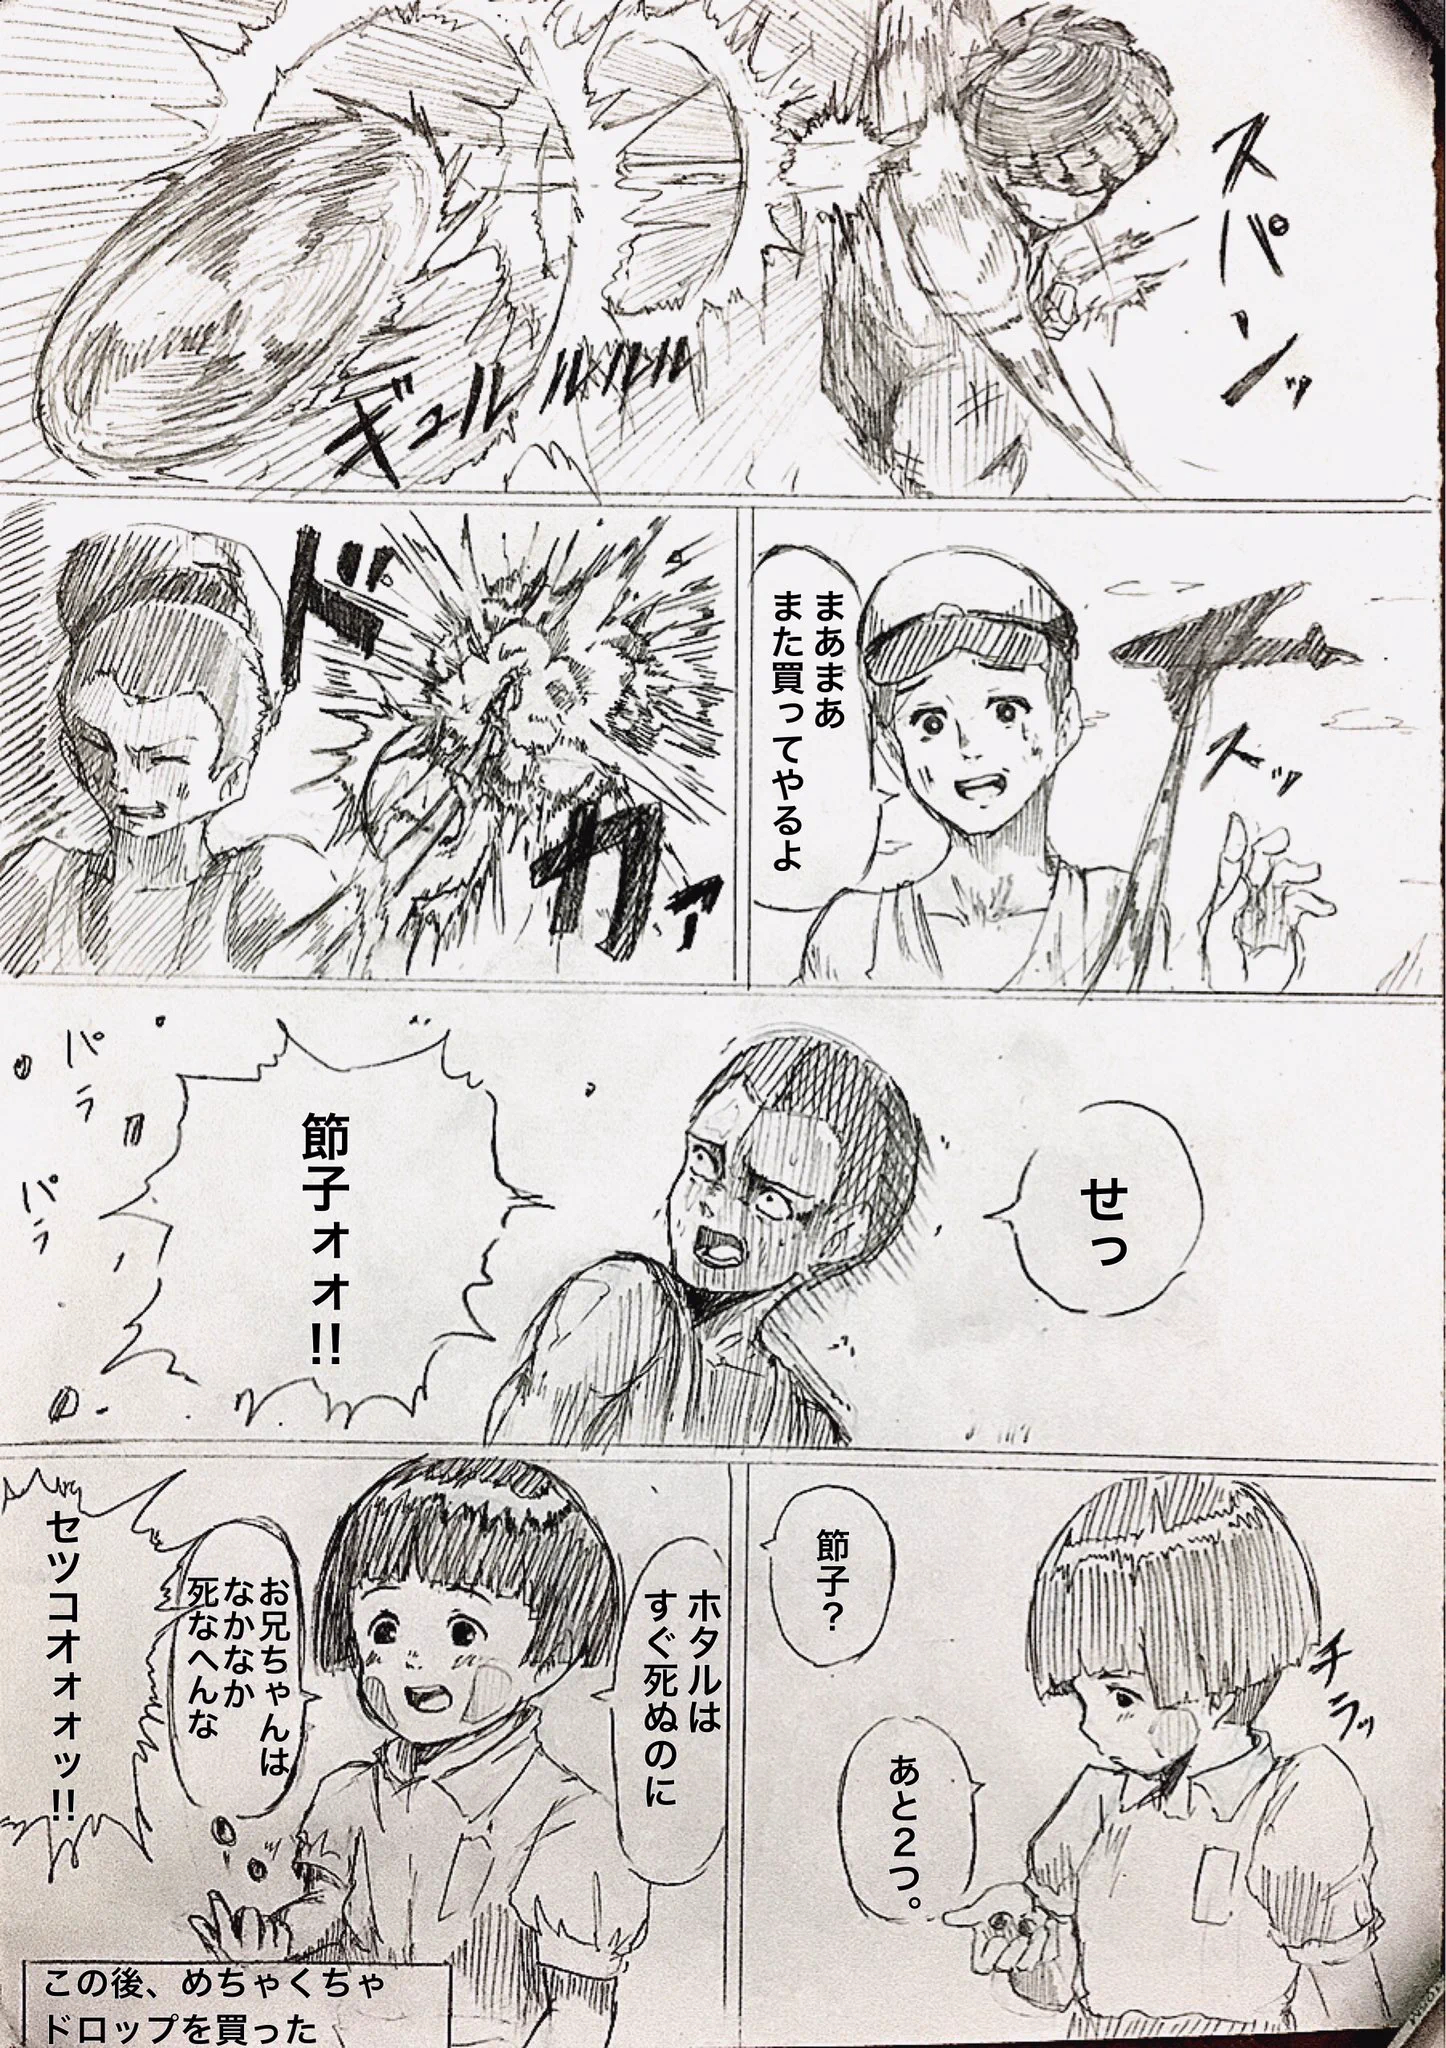 スパンッ
ギュルルルル
まあまあ
また買ってやるよ
ズッ
ドカァ
せっ
節子ォォ!!
パラ
パラ
節子?
チラッ
あと2つ。
ホタルは
すぐ死ぬのに
お兄ちゃんは
なかなか
死なへんな
セツコオォォッ!!
この後、めちゃくちゃ
ドロップを買った